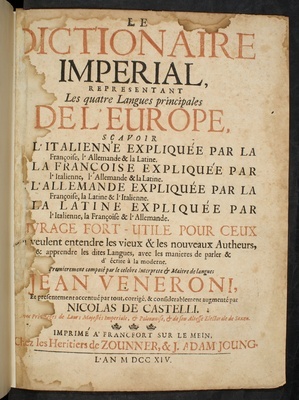 LE
DICTIONAIRE
IMPERIAL,
REPRESENTANT
Les quatre Langues principales
DE L'EUROPE,
SCAVOIR
L'ITALIENNE EXPLIQUÉE PAR LA
Françoise, l'Allemande & la Latine.
LA FRANÇOISE EXPLIQUÉE PAR
l'Italienne, l'Allemande & la Latine.
L'ALLEMANDE EXPLIQUÉE PAR LA
Françoise, la Latine & l'Italienne.
LA LATINE EXPLIQUÉE PAR
l'Italienne, la Françoise & l'Allemande.
OUVRAGE FORT-UTILE POUR CEUX
veulent entendre les vieux & les nouveaux Autheurs,
& apprendre les dites Langues, avec les manieres de parler &
d'écrire à la moderne.
Premierement composé par le celebre interprete & Maitre de langues
JEAN VENERONI,
Et presentement accentué par tout, corrigé, & considerablement augmenté par
NICOLAS DE CASTELLI.
IMPRIMÉ A FRANCFORT SUR LE MEIN,
Chez les Heritiers de ZOUNNER, & J. ADAM JOUNG.
L'AN M DCC XIV.